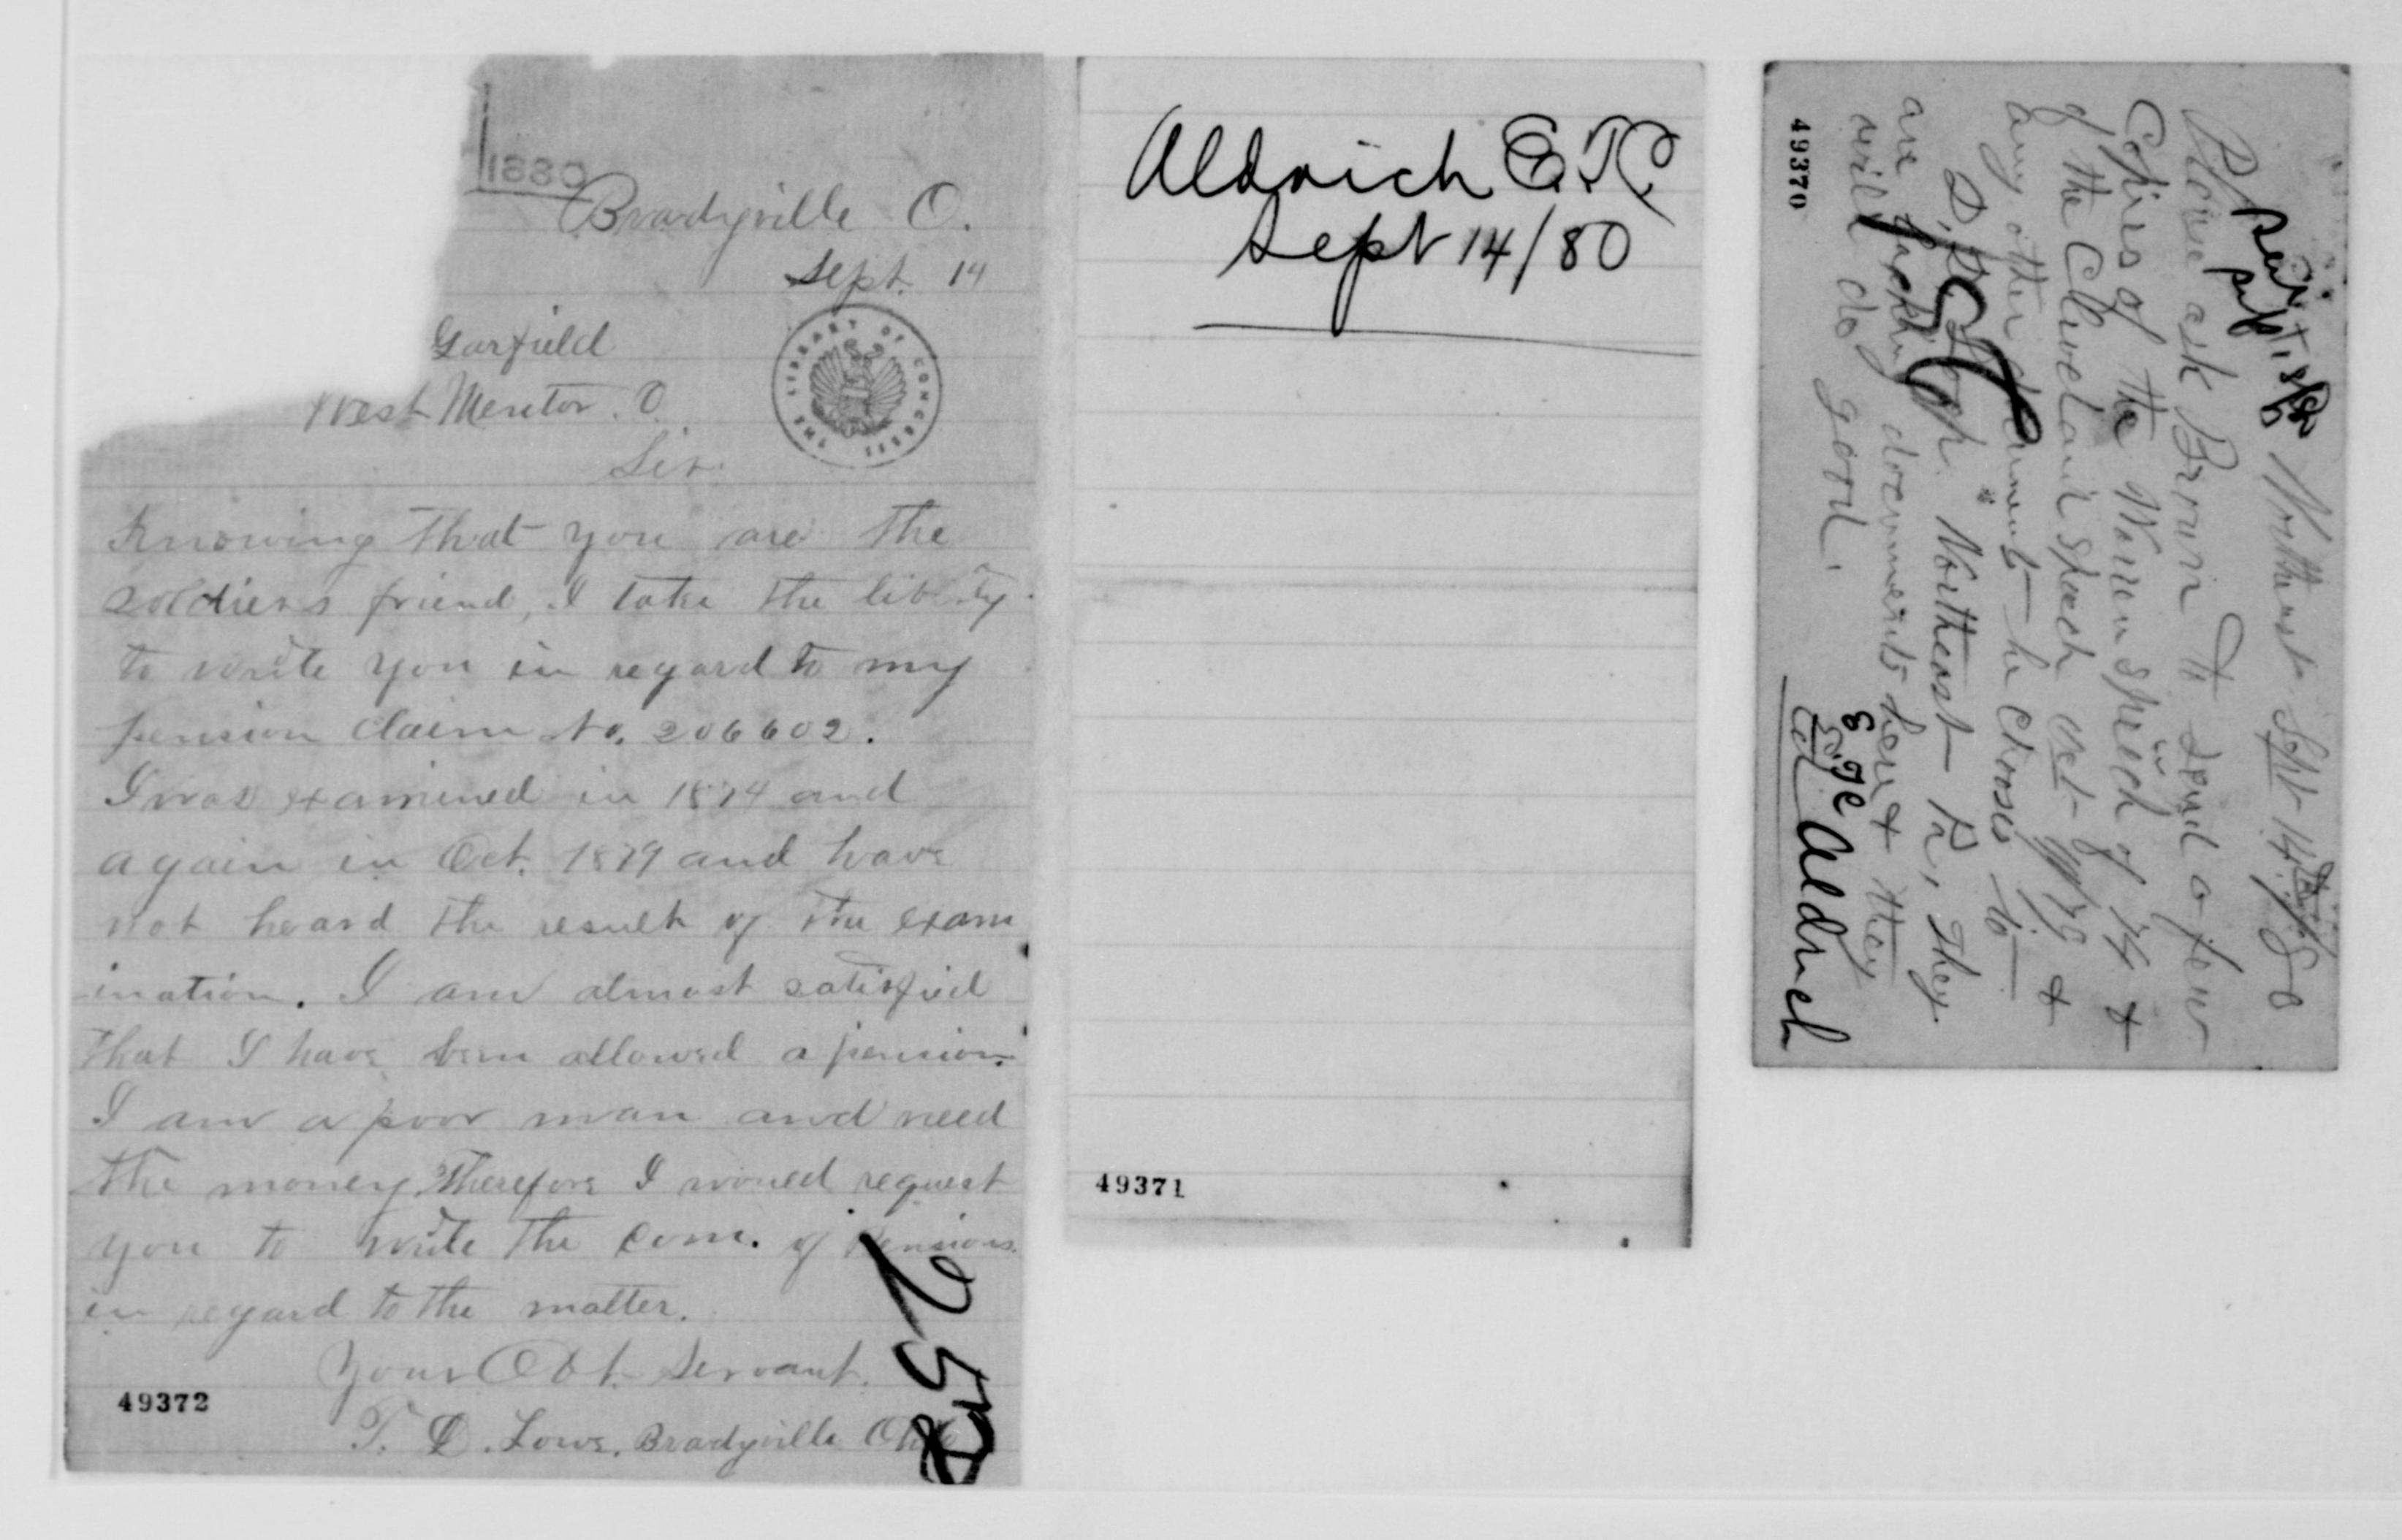 1880
Bradyville O.
Sept. 14
Garfield
West Mentor. O.
Sir.
Knowing that you are the
soldiers friend, I take the liberty
to write you in regard to my
pension claim No. 206602.
I was examined in 1874 and
again in Oct. 1879 and have
not heard the result of the exam
-ination. I am almost satisfied
that I have been allowed a pension.
I am a poor man and need
the money. Therefore I would request
you to write the Com. of Pensions.
in regard to the matter.
Your Obt. Servant.
T. D. Lowe. Bradyville Ohio
49372
252
THE LIBRARY OF CONGRESS
Aldrich E. K.
Sept 14/80
49371
Northeast Sept 14/80
Please ask Brown to send a few
Copies of the Warren speech of 74 &
of the Cleveland speech in Oct 79 &
any other documents he chooses to
Northeast Pa, They
are documents here & they
will do good.
Aldrich
49370